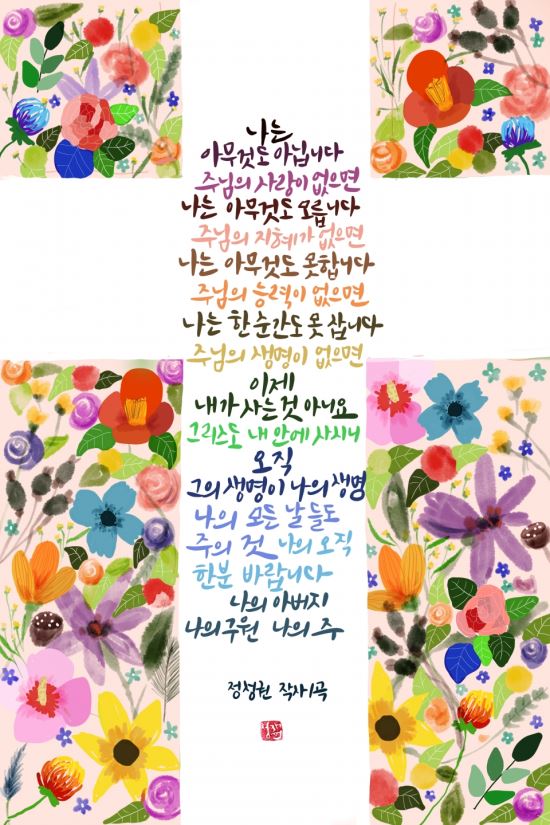 나는
아무것도 아닙니다
주님의 사랑이 없으면
나는 아무것도 모릅니다
주님의 지혜가 없으면
나는 아무것도 못합니다
주님의 능력이 없으면
나는 한순간도 못 삽니다
주님의 생명이 없으면
이제
내가 사는것 아니요
그리스도 내 안에 사시니
오직
그의 생명이 나의 생명
나의 모든 날들도
주의 것 나의 오직
한분 바랍니다
나의 아버지
나의 구원 나의 주
정성원 작사/곡